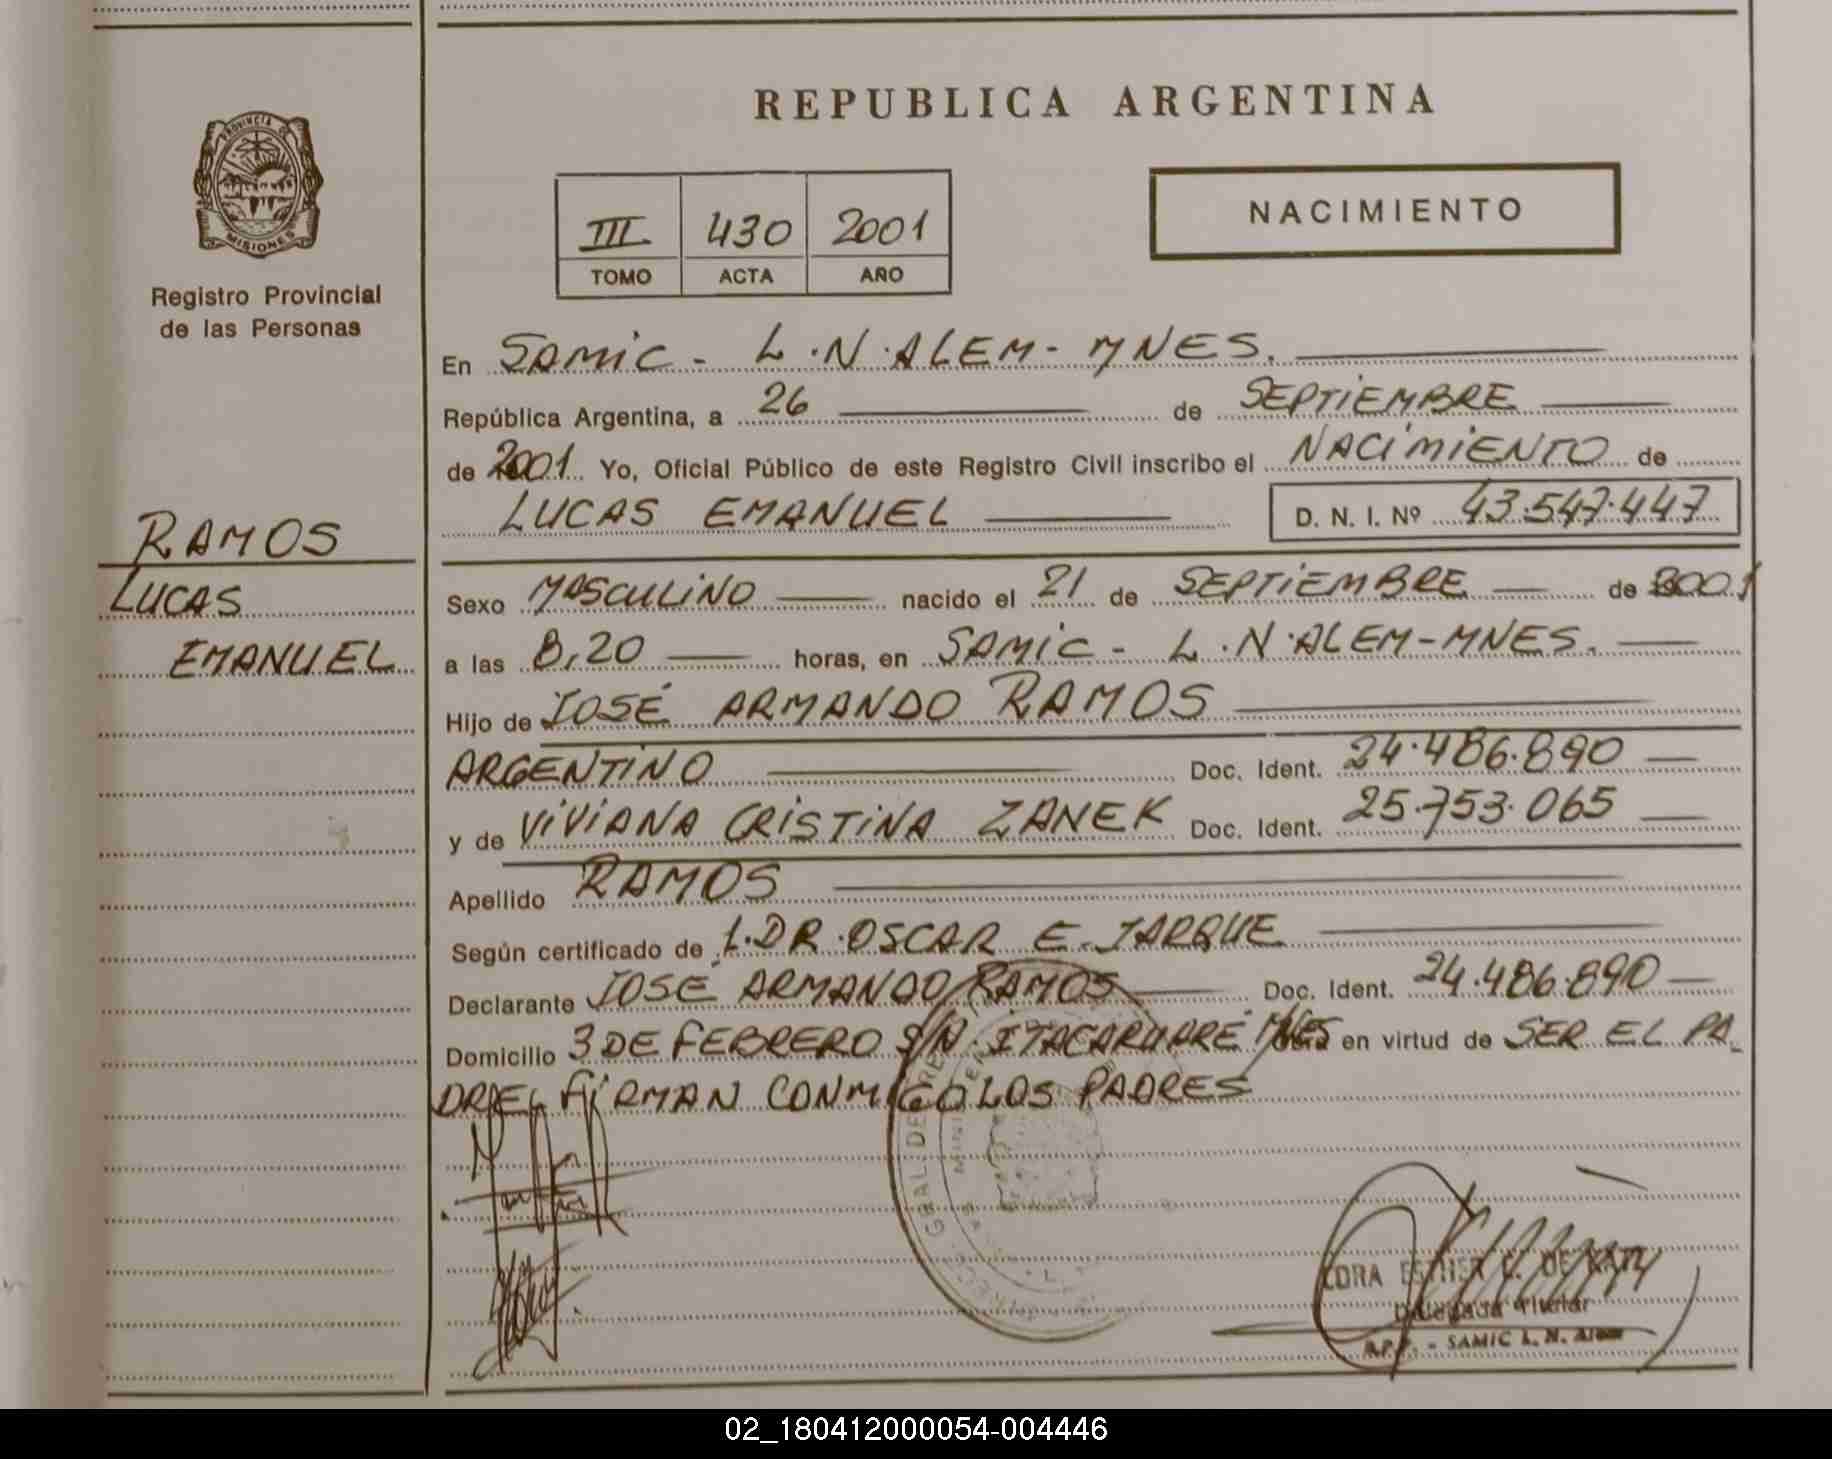 REPUBLICA ARGENTINA
PROVINCIA DE
MISIONES
Registro Provincial
de las Personas
III 430 2001
TOMO ACTA AÑO
NACIMIENTO
En SAMIC - L.N.ALEM - MNES.
República Argentina, a 26 de SEPTIEMBRE
de 2001 Yo, Oficial Público de este Registro Civil inscribo el NACIMIENTO de
LUCAS EMANUEL D. N. I. Nº 43.547.447
RAMOS
LUCAS
EMANUEL
Sexo MASCULINO nacido el 21 de SEPTIEMBRE de 2001
a las 8,20 horas, en SAMIC - L.N.ALEM-MNES.
Hijo de JOSÉ ARMANDO RAMOS
ARGENTINO Doc. Ident. 24.486.890
y de VIVIANA CRISTINA ZANEK Doc. Ident. 25.753.065
Apellido RAMOS
Según certificado de 1.DR.OSCAR E. JARQUE
Declarante JOSÉ ARMANDO RAMOS Doc. Ident. 24.486.890
Domicilio 3 DE FEBRERO S/N. ITACARUARE MNES en virtud de SER EL PA_
DRE FIRMAN CONMIGO LOS PADRES
GRAL. DE
CDRA ESTHER DE
Delegada Titular
R.P.P. - SAMIC L. N. Alem
02_180412000054-004446